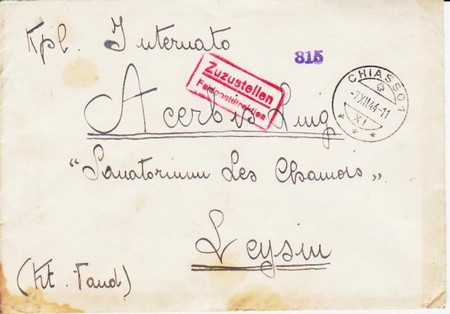 Kpl. Internato
315
Zuzustellen
Feldpostdirektion
CHIASSO 1
-7.XII.44-11
XI
Acerbis Luigi
"Sanatorium Les Chamois"
Leysin
(Kt. Vaud)